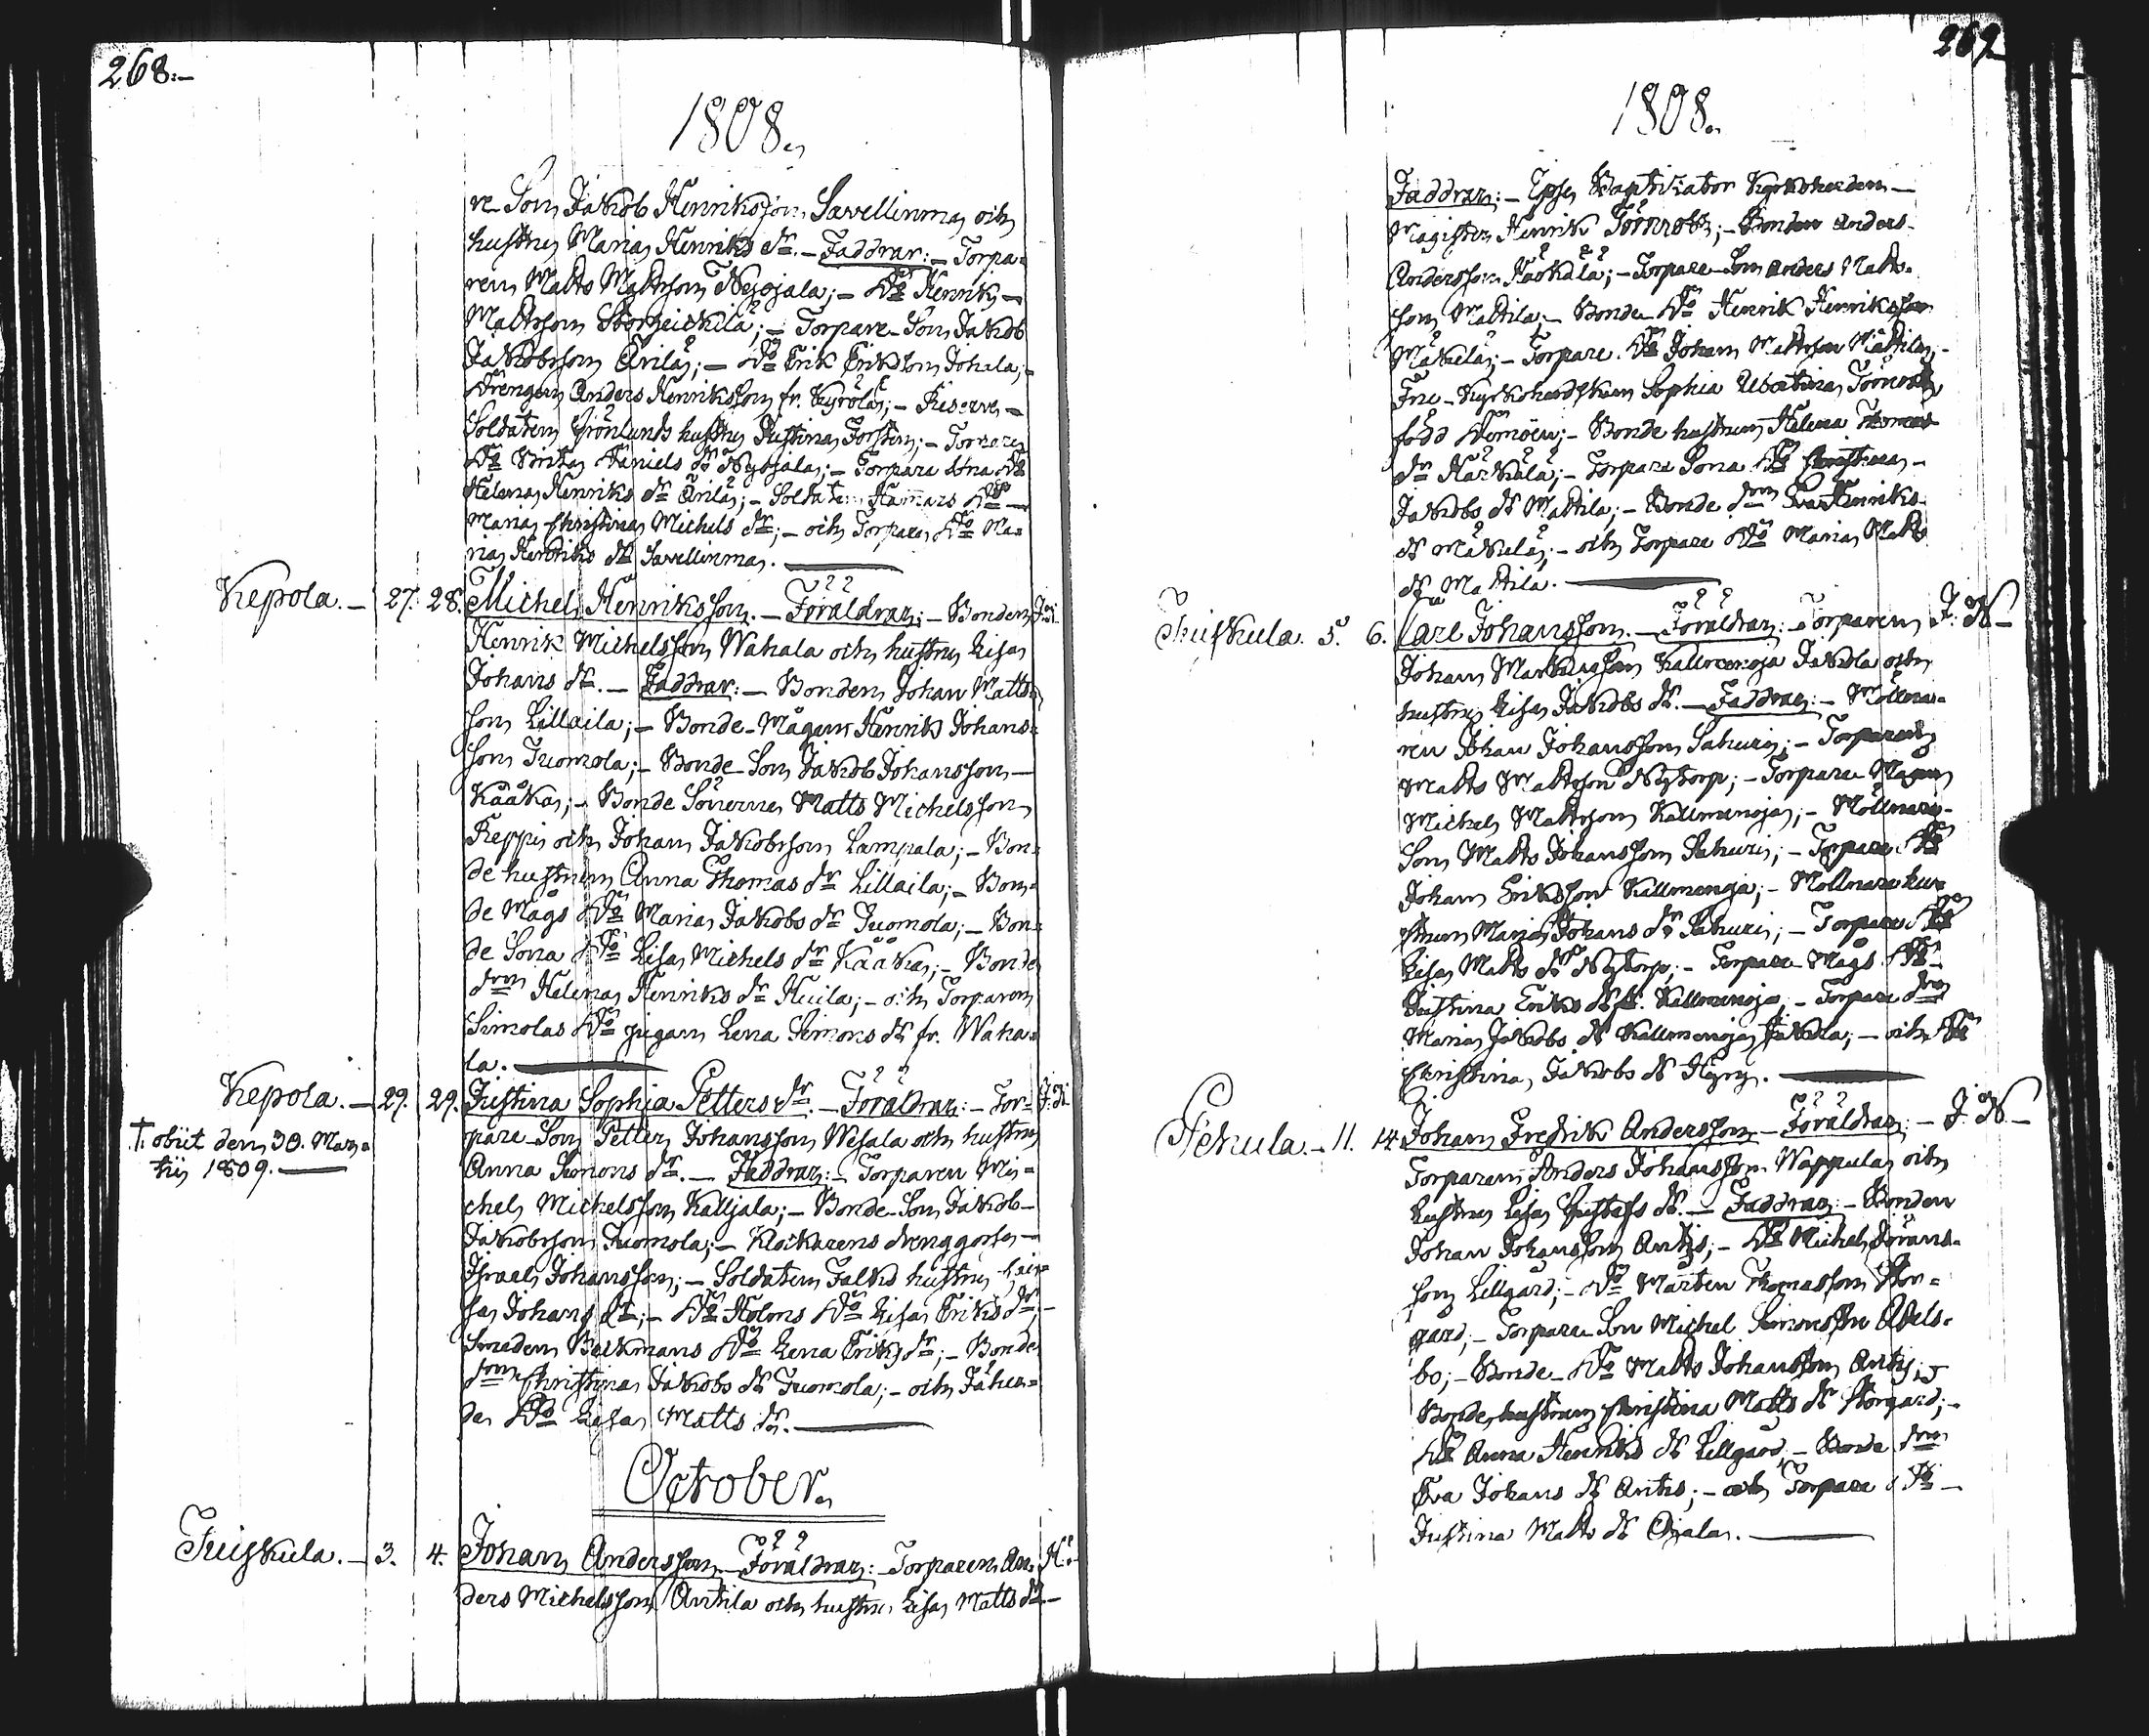 268:-
1808.
re-Son Jakob Henriksson Savellinma och
hustru Maria Henriks dr. - Faddrar: - Torpa=
ren Matts Mattsson Nyojala; - Do Henrik
Mattsson Storheickilä; - Torpare-Son Jakob
Jakobsson Ärilä; - Do Erik Eriksson Johala;
Drengen Anders Henriksson fr. Kyrölä; - Reserve
Soldaten Grönlunds hustru Justina
Do Brita Daniels dr Nyojala; - Torpare Sona Do
Helena Henriks dr Ärilä; - Soldaten Hammars Do
Maria Christina Michels dr; - och Torpare Do Ma=
ria Henriks dr Savellinma.
Kepola. - 27. 28. Michel Henriksson. - Föräldrar: - Bonden
Henrik Michelsson Wahala och hustru Lisa
Johans dr. - Faddrar: - Bonden Johan Matts
son Lillaila; - Bonde-Mågen Henrik Johans=
son Tuomola; - Bonde-Son Jakob Johansson
Kääkä; - Bonde Sönerne Matts Michelsson
Reppi och Johan Jakobsson Lampala; - Bon=
de hustrun Anna Thomas dr Lillaila; - Bon=
de Mågs Do Maria Jakobs dr Tuomola; - Bon=
de Sona Do Lisa Michels dr Kääkä; - Bonde
drn Helena Henriks dr Huila; - och Torparen
Simolas Do pigan Lena Simons dr fr. Waha=
la.
Kepola. - 29. 29. Justina Sophia Petters dr. - Föräldrar: - Tor=
† obiit den 30. Mar=
tij 1809.
pare-Son Petter Johansson Wesala och hustru
Anna Simons dr. - Faddrar: - Torparen Mi=
chel Michelsson Kalljala; - Bonde-Son Jakob
Jakobsson Tuomola; - Klockarens drenggosse
Israel Johansson; - Soldaten Falks hustru
sa Johans dr; - Do Holms Do Lisa Eriks dr;
Smeden Backmans Do Lena Eriks dr; - Bonde
drn Christina Jakobs dr Tuomola; - och
Do Lisa Matts dr.
October.
Tuiskula. - 3. 4. Johan Andersson - Föräldrar: - Torparen An=
ders Michelsson Antila och hustru Lisa Matts dr.
269
1808.
Faddrar: - Ipse Baptisator Kyrkoherden
Magister Henrik Törnroth; - Bonden Anders
Andersson Kärkälä; - Torpare-Son Anders Matts=
son Mattila; - Bonde Do Henrik Henriksson
Mäkelä; - Torpare Do Johan Mattsson Mattila;
Fru Kyrkoherdskan Sophia Ubertina Törnroth
född - Bonde hustrun Helena Thomas
dr Kärkälä; - Torpare Sona Do Christina
Jakobs dr Mattila; - Bonde drn Eva Henriks
dr Mäkelä; - och Torpare Do Maria Matts
dr Mattila.
Tuiskula. 5. 6. Carl Johansson. - Föräldrar: - Torparen J. H
Johan Kallmenoja Jakola och
hustru Lisa Jakobs dr. - Faddrar: - Möllna=
ren Johan Johansson Sahuri; - Torparen
Matts Mattsson Nytorp; - Torpare Mågen
Michel Mattsson Kallmenoja; - Möllnare
Son Matts Johansson Sahuri; - Torpare Do
Johan Eriksson Kallmenoja; - Möllnare hu=
strun Maria Johans dr Sahuri; - Torpare Do
Lisa Matts dr Nytorp; - Torpare Mågs Do
Justina Eriks dr Kallmenoja; - Torpare drn
Maria Jakobs dr Kallmenoja Jakola; - och Do
Christina Jakobs dr Hyry.
Pekula. - 11. 14. Johan Fredrik Andersson - Föräldrar: - J. H
Torparen Anders Johansson Wappula och
hustru Lisa Gustafs dr. - Faddrar: - Bonden
Johan Johansson Antis; - Do Michel Görans=
son Lillgård; - Do Mårten Thomasson Stor=
gård; - Torpare Son Michel Simonsson Adels=
bo; - Bonde Do Matts Johansson Antis;
Bonde hustrun Christina Matts dr Storgård;
Do Anna Henriks dr Lillgård; - Bonde drn
Eva Johans dr Antis; - och Torpare Do
Justina Matts dr Ojala.